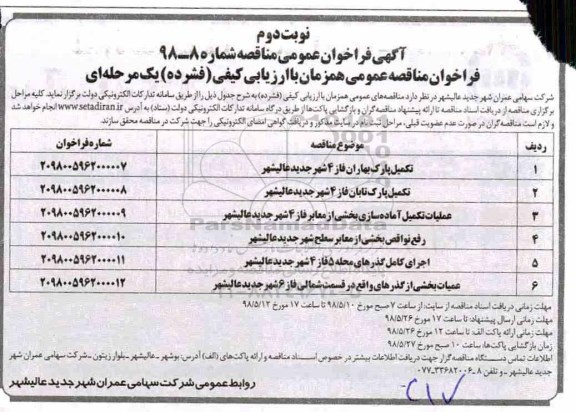 نوبت دوم
آگهی فراخوان عمومی مناقصه شماره ۸-۹۸
فراخوان مناقصه عمومی همزمان با ارزیابی کیفی (فشرده) یک مرحله‌ای
شرکت سهامی عمران شهر جدید عالیشهر در نظر دارد مناقصه‌های عمومی همزمان با ارزیابی کیفی (فشرده) به شرح جدول ذیل را از طریق سامانه تدارکات الکترونیکی دولت برگزار نماید. کلیه مراحل
برگزاری مناقصه از دریافت اسناد مناقصه تا ارائه پیشنهاد مناقصه گران و بازگشایی پاکت‌ها از طریق درگاه سامانه تدارکات الکترونیکی دولت (ستاد) به آدرس www.setadiran.ir انجام خواهد شد
و لازم است مناقصه گران در صورت عدم عضویت قبلی، مراحل ثبت نام در سایت مذکور و دریافت گواهی امضای الکترونیکی را جهت شرکت در مناقصه محقق سازند.
ردیف موضوع مناقصه شماره فراخوان
۱ تکمیل پارک بهاران فاز ۴ شهر جدید عالیشهر ۲۰۹۸۰۰۵۹۶۲۰۰۰۰۰۷
۲ تکمیل پارک تابان فاز ۴ شهر جدید عالیشهر ۲۰۹۸۰۰۵۹۶۲۰۰۰۰۰۸
۳ عملیات تکمیل آماده سازی بخشی از معابر فاز ۴ شهر جدید عالیشهر ۲۰۹۸۰۰۵۹۶۲۰۰۰۰۰۹
۴ رفع نواقص بخشی از معابر سطح شهر جدید عالیشهر ۲۰۹۸۰۰۵۹۶۲۰۰۰۰۱۰
۵ اجرای کامل گذرهای محله ۵ فاز ۴ شهر جدید عالیشهر ۲۰۹۸۰۰۵۹۶۲۰۰۰۰۱۱
۶ عمیات بخشی از گذرهای واقع در قسمت شمالی فاز ۶ شهر جدید عالیشهر ۲۰۹۸۰۰۵۹۶۲۰۰۰۰۱۲
مهلت زمانی دریافت اسناد مناقصه از سایت: از ساعت ۷ صبح مورخ ۹۸/۵/۱۰ تا ساعت ۱۷ مورخ ۹۸/۵/۱۲
مهلت زمانی ارسال پیشنهاد: تا ساعت ۱۷ مورخ ۹۸/۵/۲۶
مهلت زمانی ارائه پاکت الف: تا ساعت ۱۲ مورخ ۹۸/۵/۲۶
زمان بازگشایی پاکت‌ها: ساعت ۱۰ صبح مورخ ۹۸/۵/۲۷
اطلاعات تماس دستگاه مناقصه گزار جهت دریافت اطلاعات بیشتر در خصوص اسناد مناقصه و ارائه پاکت‌های (الف) آدرس: بوشهر - عالیشهر - بلوار زیتون - شرکت سهامی عمران شهر
جدید عالیشهر - و تلفن ۸-۳۳۶۸۲۰۰۶-۰۷۷
روابط عمومی شرکت سهامی عمران شهر جدید عالیشهر
ParsNamadData